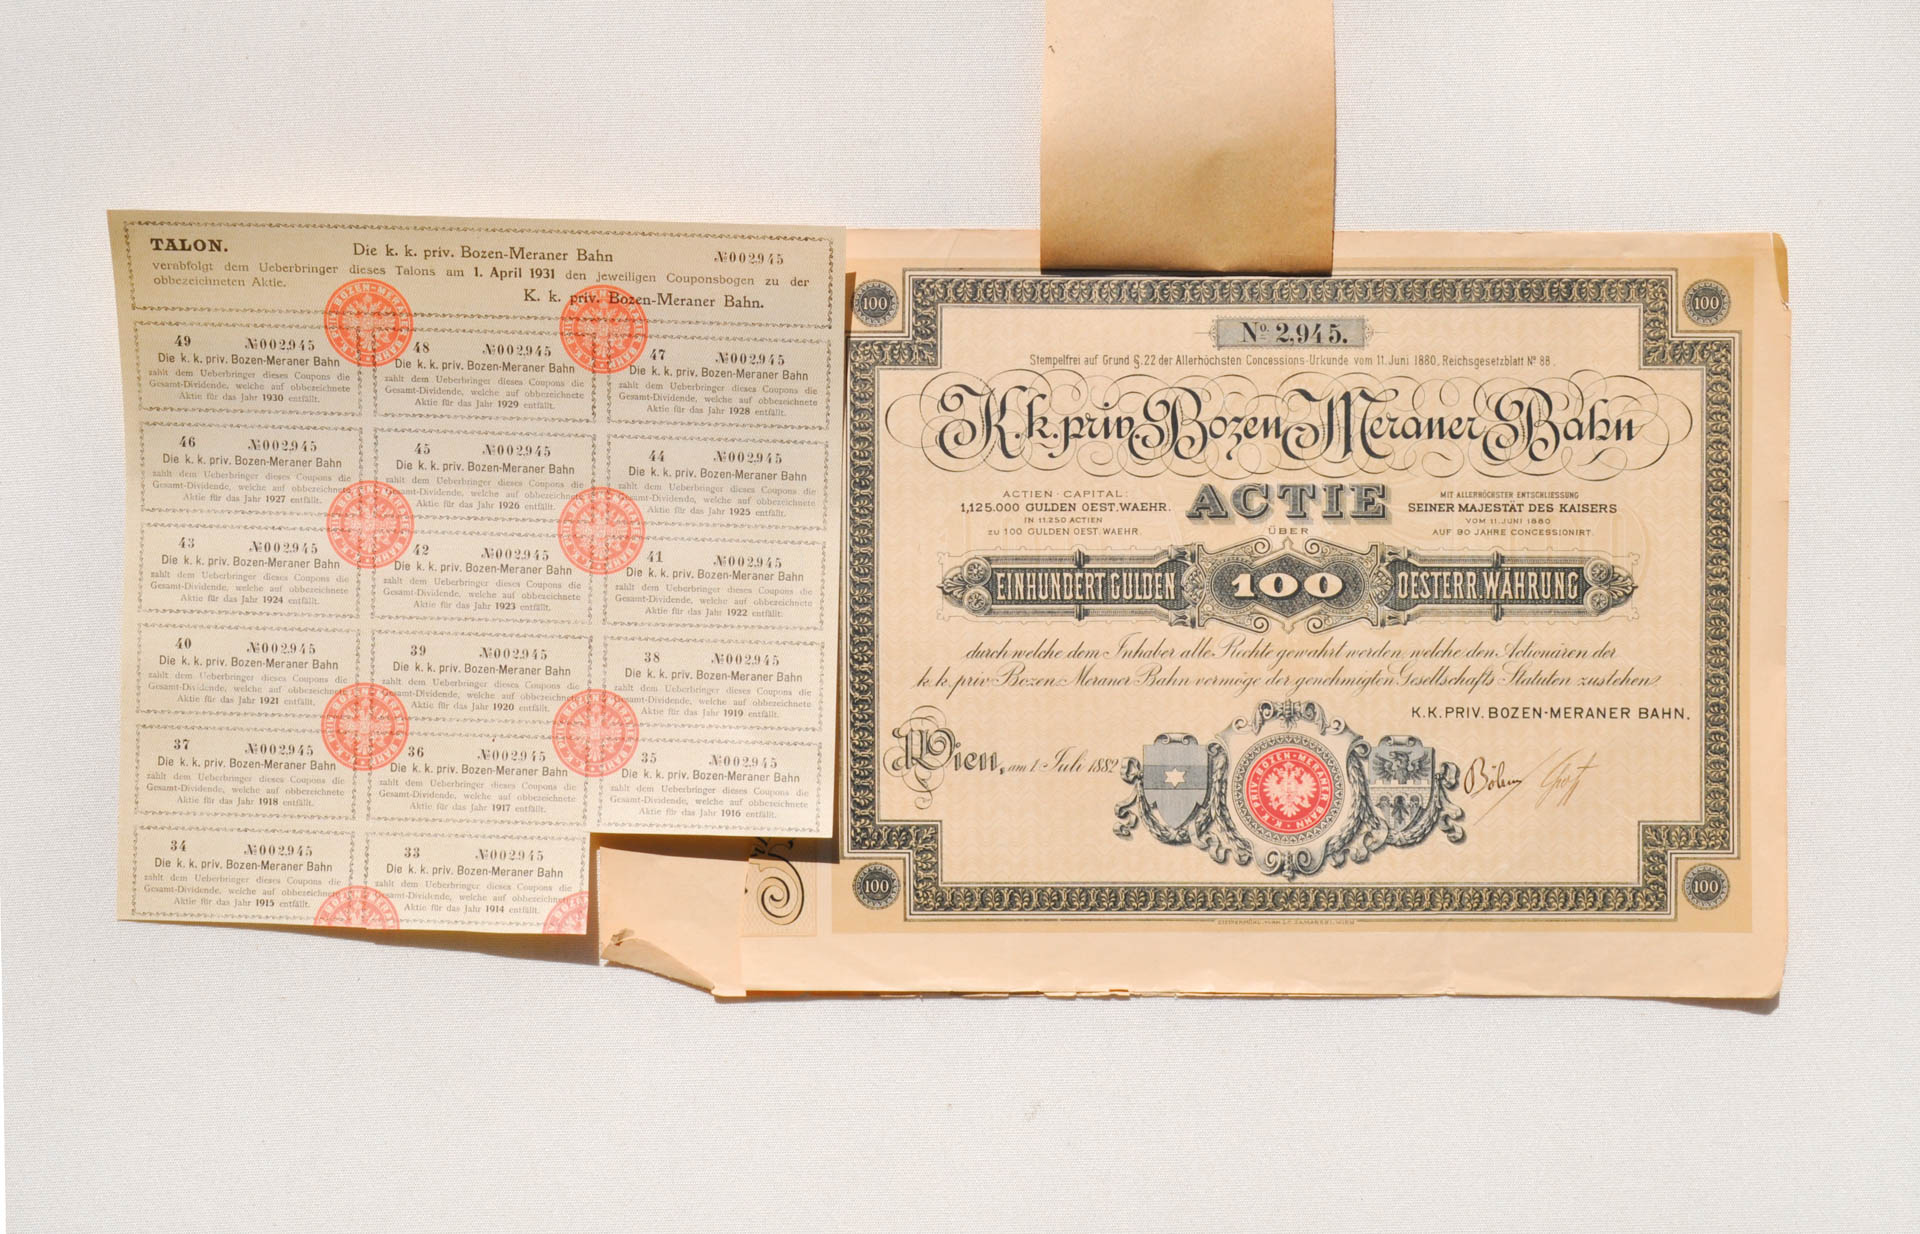 TALON.
Die k. k. priv. Bozen-Meraner Bahn
№002,945
verabfolgt dem Ueberbringer dieses Talons am 1. April 1931 den jeweiligen Couponsbogen zu der
obbezeichneten Aktie.
K. k. priv. Bozen-Meraner Bahn.
49 №002,945
Die k. k. priv. Bozen-Meraner Bahn
zahlt dem Ueberbringer dieses Coupons die
Gesamt-Dividende, welche auf obbezeichnete
Aktie für das Jahr 1930 entfällt.
48 №002,945
Die k. k. priv. Bozen-Meraner Bahn
zahlt dem Ueberbringer dieses Coupons die
Gesamt-Dividende, welche auf obbezeichnete
Aktie für das Jahr 1929 entfällt.
47 №002,945
Die k. k. priv. Bozen-Meraner Bahn
zahlt dem Ueberbringer dieses Coupons die
Gesamt-Dividende, welche auf obbezeichnete
Aktie für das Jahr 1928 entfällt.
46 №002,945
Die k. k. priv. Bozen-Meraner Bahn
zahlt dem Ueberbringer dieses Coupons die
Gesamt-Dividende, welche auf obbezeichnete
Aktie für das Jahr 1927 entfällt.
45 №002,945
Die k. k. priv. Bozen-Meraner Bahn
zahlt dem Ueberbringer dieses Coupons die
Gesamt-Dividende, welche auf obbezeichnete
Aktie für das Jahr 1926 entfällt.
44 №002,945
Die k. k. priv. Bozen-Meraner Bahn
zahlt dem Ueberbringer dieses Coupons die
Gesamt-Dividende, welche auf obbezeichnete
Aktie für das Jahr 1925 entfällt.
43 №002,945
Die k. k. priv. Bozen-Meraner Bahn
zahlt dem Ueberbringer dieses Coupons die
Gesamt-Dividende, welche auf obbezeichnete
Aktie für das Jahr 1924 entfällt.
42 №002,945
Die k. k. priv. Bozen-Meraner Bahn
zahlt dem Ueberbringer dieses Coupons die
Gesamt-Dividende, welche auf obbezeichnete
Aktie für das Jahr 1923 entfällt.
41 №002,945
Die k. k. priv. Bozen-Meraner Bahn
zahlt dem Ueberbringer dieses Coupons die
Gesamt-Dividende, welche auf obbezeichnete
Aktie für das Jahr 1922 entfällt.
40 №002,945
Die k. k. priv. Bozen-Meraner Bahn
zahlt dem Ueberbringer dieses Coupons die
Gesamt-Dividende, welche auf obbezeichnete
Aktie für das Jahr 1921 entfällt.
39 №002,945
Die k. k. priv. Bozen-Meraner Bahn
zahlt dem Ueberbringer dieses Coupons die
Gesamt-Dividende, welche auf obbezeichnete
Aktie für das Jahr 1920 entfällt.
38 №002,945
Die k. k. priv. Bozen-Meraner Bahn
zahlt dem Ueberbringer dieses Coupons die
Gesamt-Dividende, welche auf obbezeichnete
Aktie für das Jahr 1919 entfällt.
37 №002,945
Die k. k. priv. Bozen-Meraner Bahn
zahlt dem Ueberbringer dieses Coupons die
Gesamt-Dividende, welche auf obbezeichnete
Aktie für das Jahr 1918 entfällt.
36 №002,945
Die k. k. priv. Bozen-Meraner Bahn
zahlt dem Ueberbringer dieses Coupons die
Gesamt-Dividende, welche auf obbezeichnete
Aktie für das Jahr 1917 entfällt.
35 №002,945
Die k. k. priv. Bozen-Meraner Bahn
zahlt dem Ueberbringer dieses Coupons die
Gesamt-Dividende, welche auf obbezeichnete
Aktie für das Jahr 1916 entfällt.
34 №002,945
Die k. k. priv. Bozen-Meraner Bahn
zahlt dem Ueberbringer dieses Coupons die
Gesamt-Dividende, welche auf obbezeichnete
Aktie für das Jahr 1915 entfällt.
33 №002,945
Die k. k. priv. Bozen-Meraner Bahn
zahlt dem Ueberbringer dieses Coupons die
Gesamt-Dividende, welche auf obbezeichnete
Aktie für das Jahr 1914 entfällt.
K. K. PRIV. BOZEN-MERANER BAHN
100
100
No. 2,945.
Stempelfrei auf Grund §.22 der Allerhöchsten Concessions-Urkunde vom 11. Juni 1880, Reichsgesetzblatt No 88.
K. k. priv. Bozen Meraner Bahn
ACTIEN-CAPITAL:
1,125.000 GULDEN OEST. WAEHR.
IN 11.250 ACTIEN
zu 100 GULDEN OEST. WAEHR.
ACTIE
ÜBER
MIT ALLERHÖCHSTER ENTSCHLIESSUNG
SEINER MAJESTÄT DES KAISERS
VOM 11. JUNI 1880
AUF 90 JAHRE CONCESSIONIRT.
EINHUNDERT GULDEN 100 OESTERR. WÄHRUNG
durch welche dem Inhaber alle Rechte gewahrt werden, welche den Actionären der
k. k. priv. Bozen Meraner Bahn vermöge der genehmigten Gesellschafts Statuten zustehen.
K. K. PRIV. BOZEN-MERANER BAHN.
Wien, am 1. Juli 1882
K. K. PRIV. BOZEN-MERANER BAHN
100
100